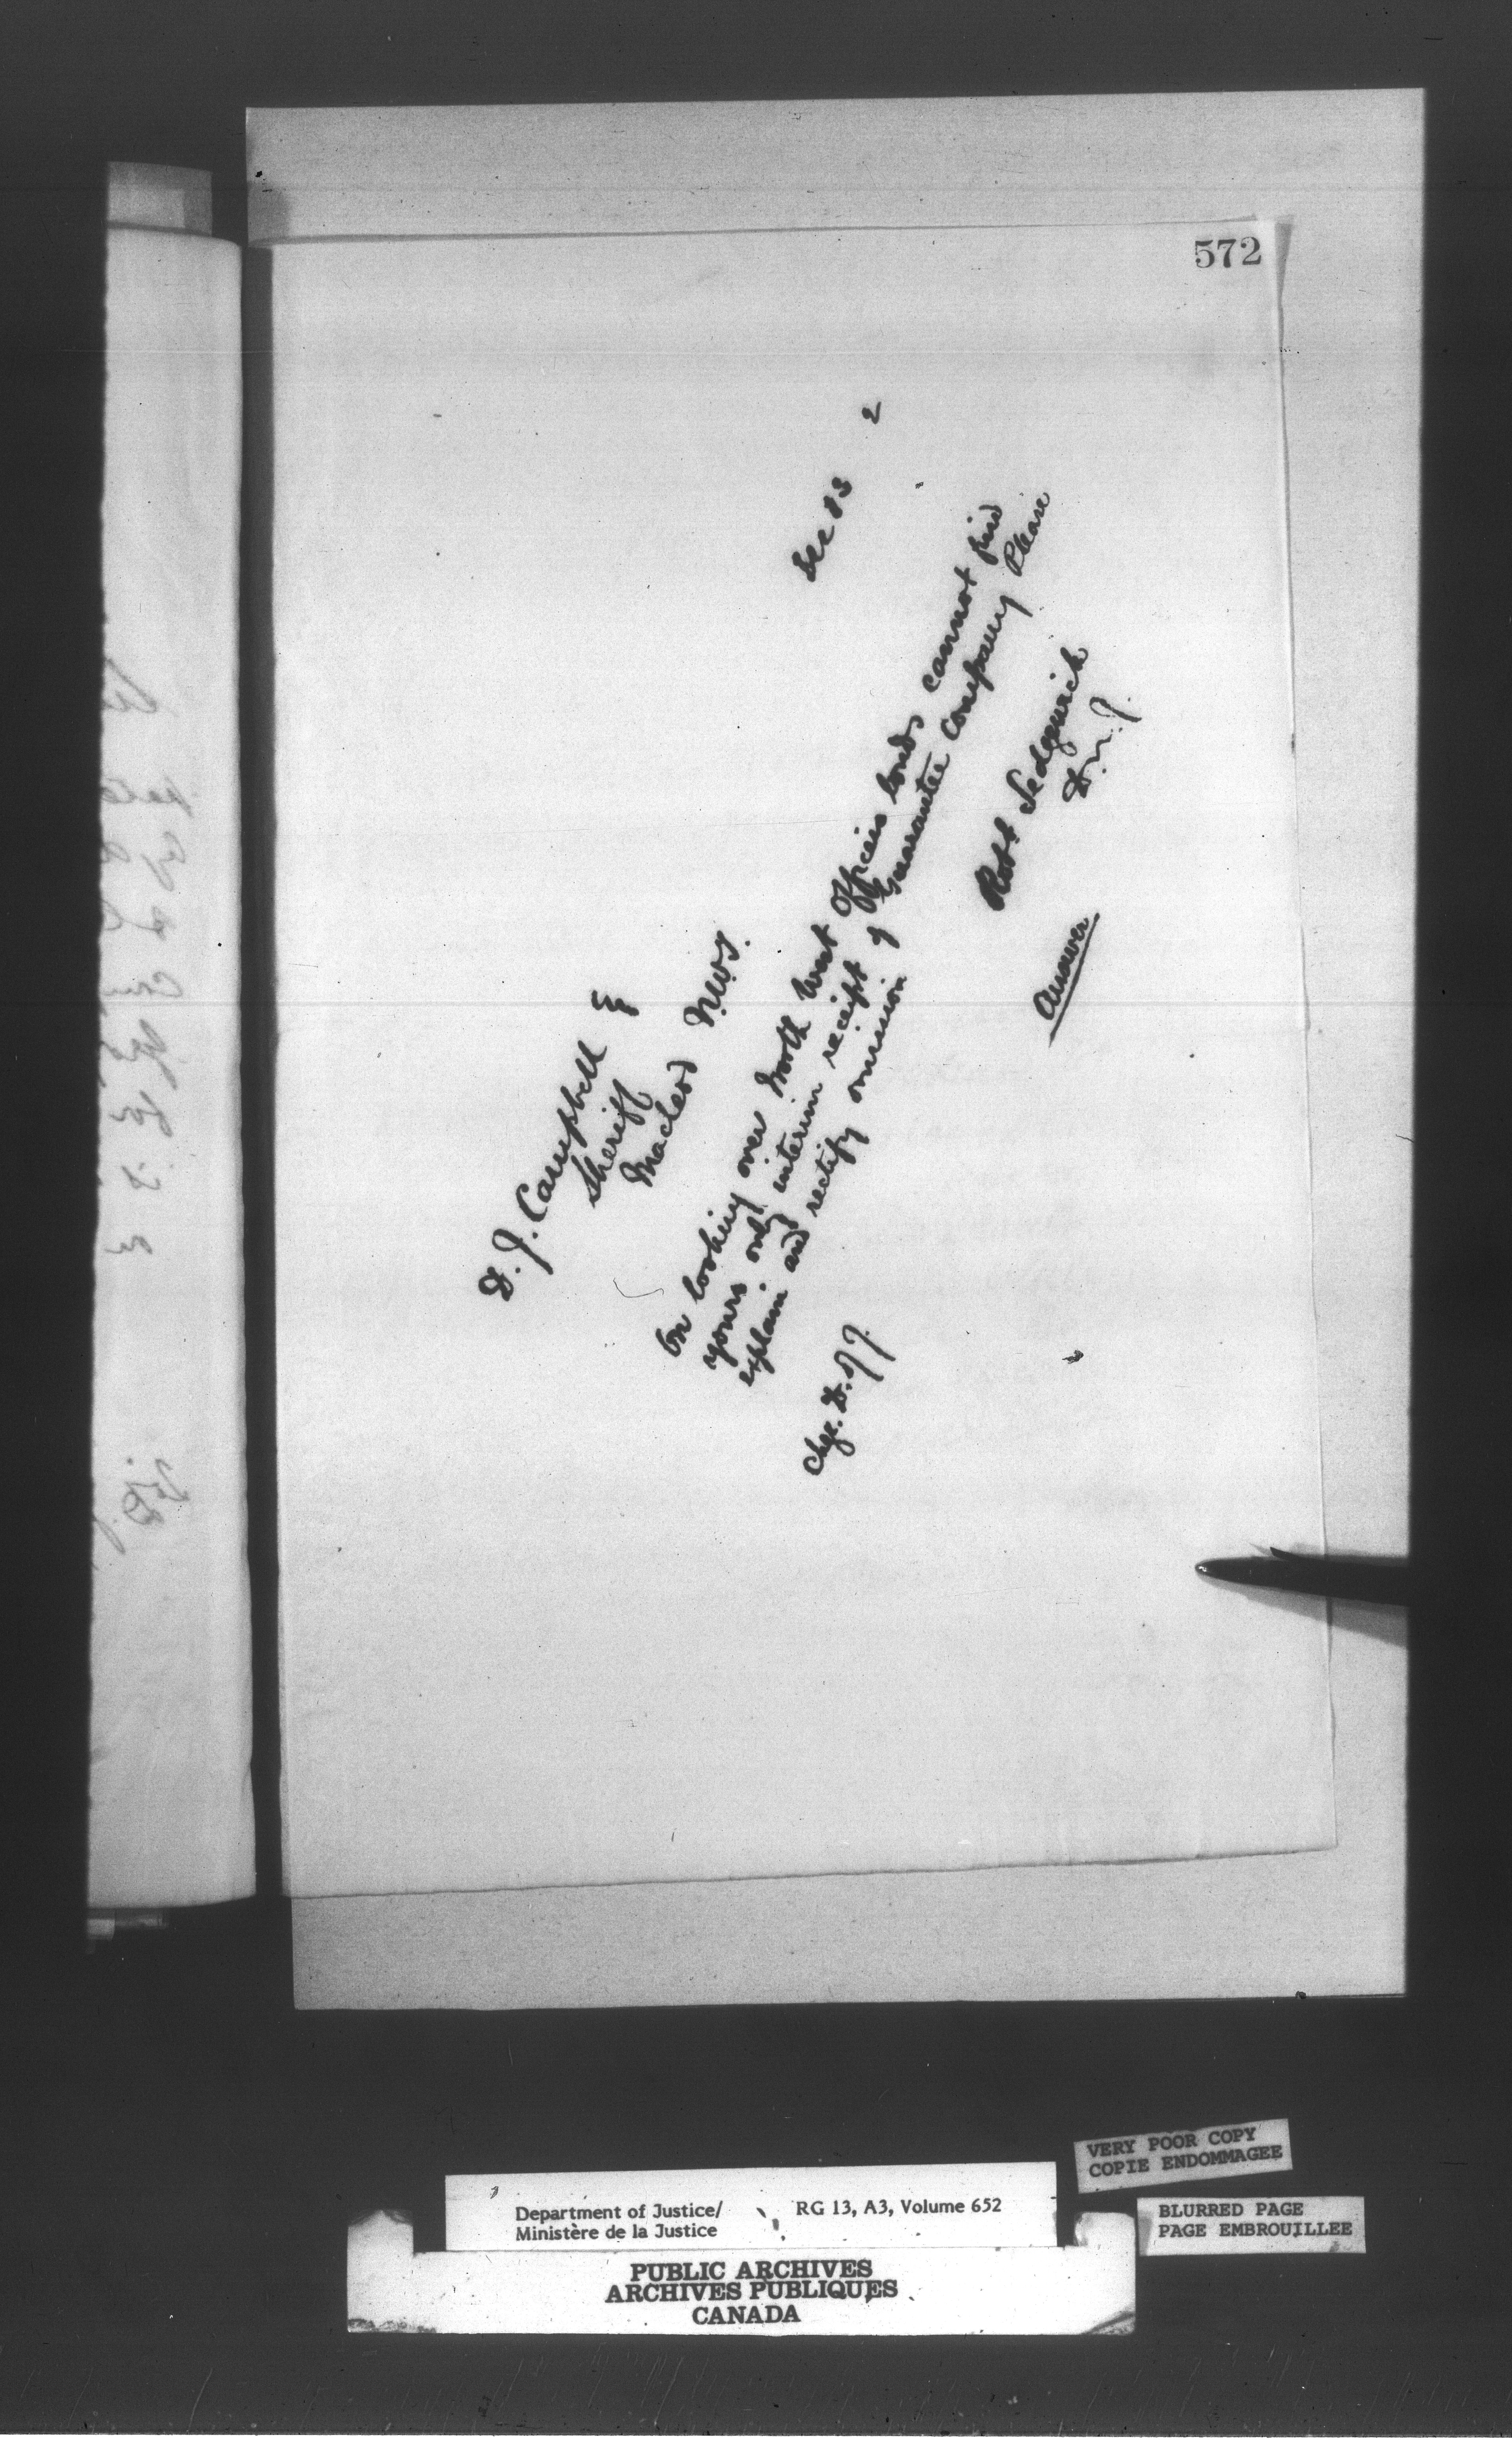 572
Dec 13 2
D. J. Campbell E
Sheriff
Macleod N.W.T.
On looking over North West Officers bonds cannot find
yours only interim receipt of Guarantee Company Please
explain and rectify omission
Robt Sedgewick
D.M.J.
Answer
Chge. D. of J.
VERY POOR COPY
COPIE ENDOMMAGEE
BLURRED PAGE
PAGE EMBROUILLEE
Department of Justice/ RG 13, A3, Volume 652
Ministère de la Justice
PUBLIC ARCHIVES
ARCHIVES PUBLIQUES
CANADA